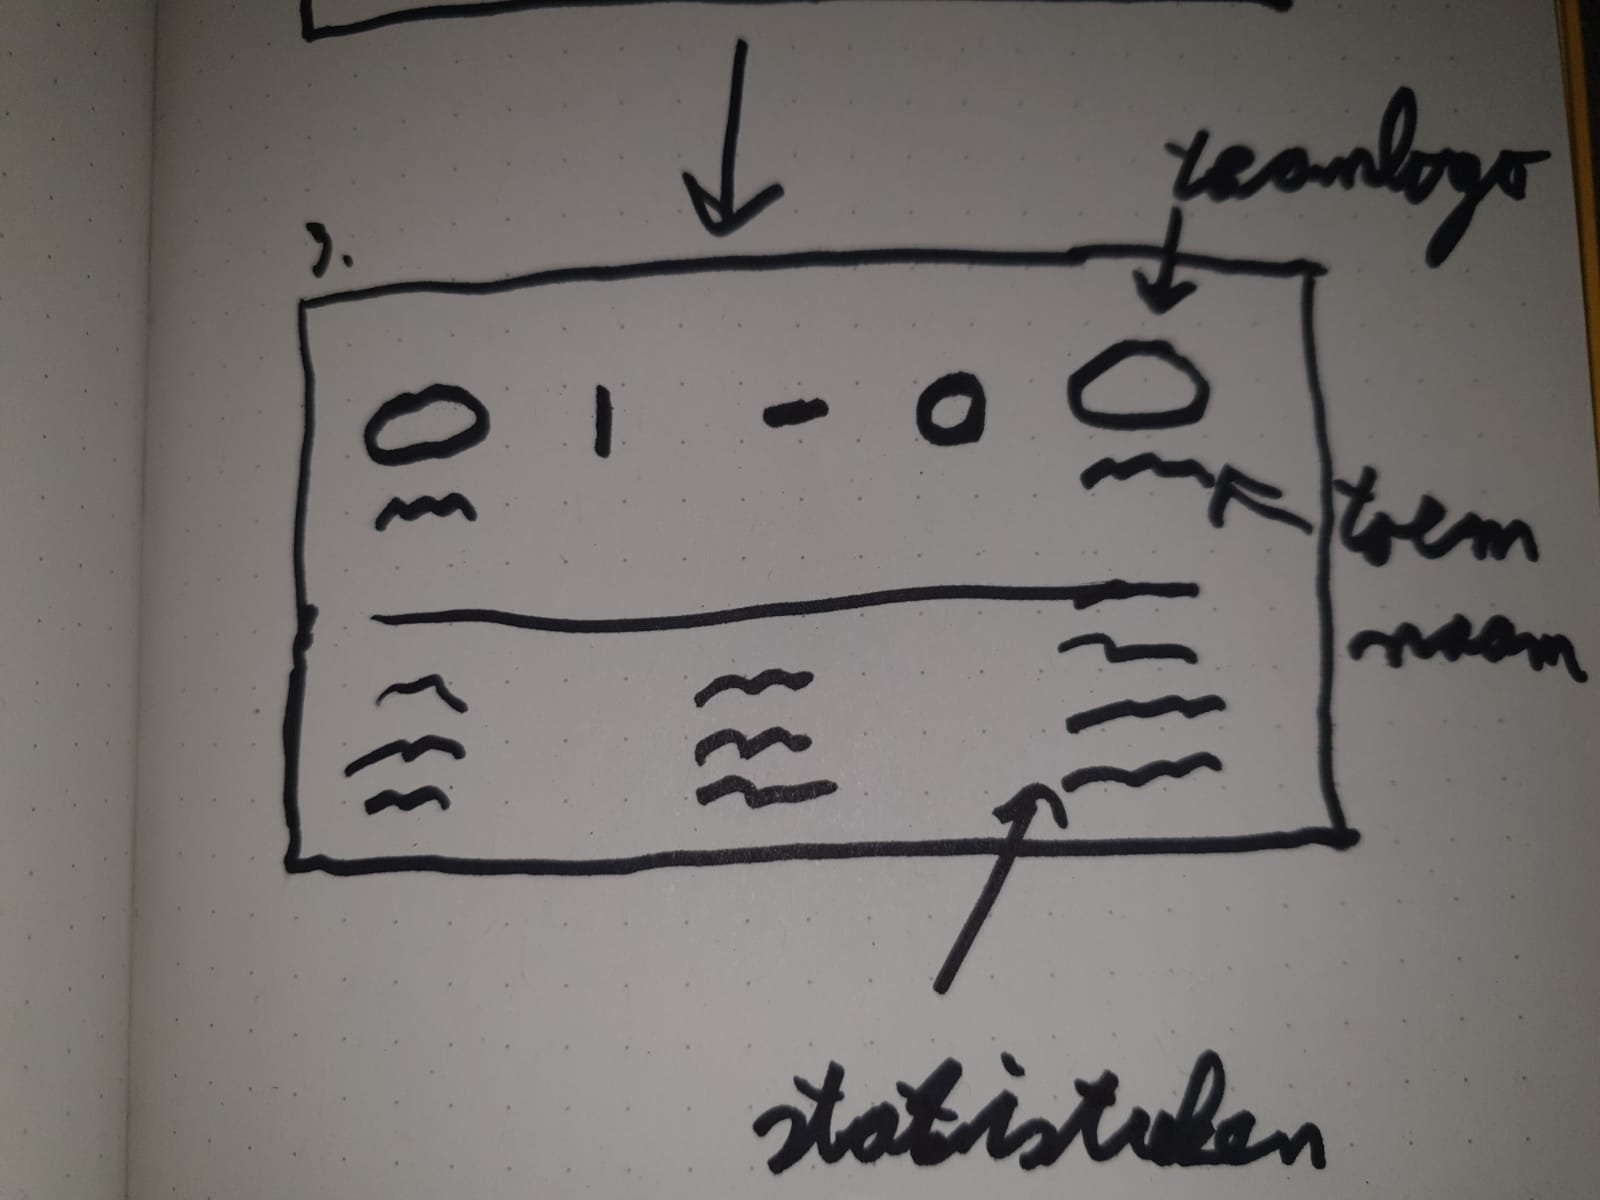 teamlogo
3.
1 - 0
team
naam
statistieken